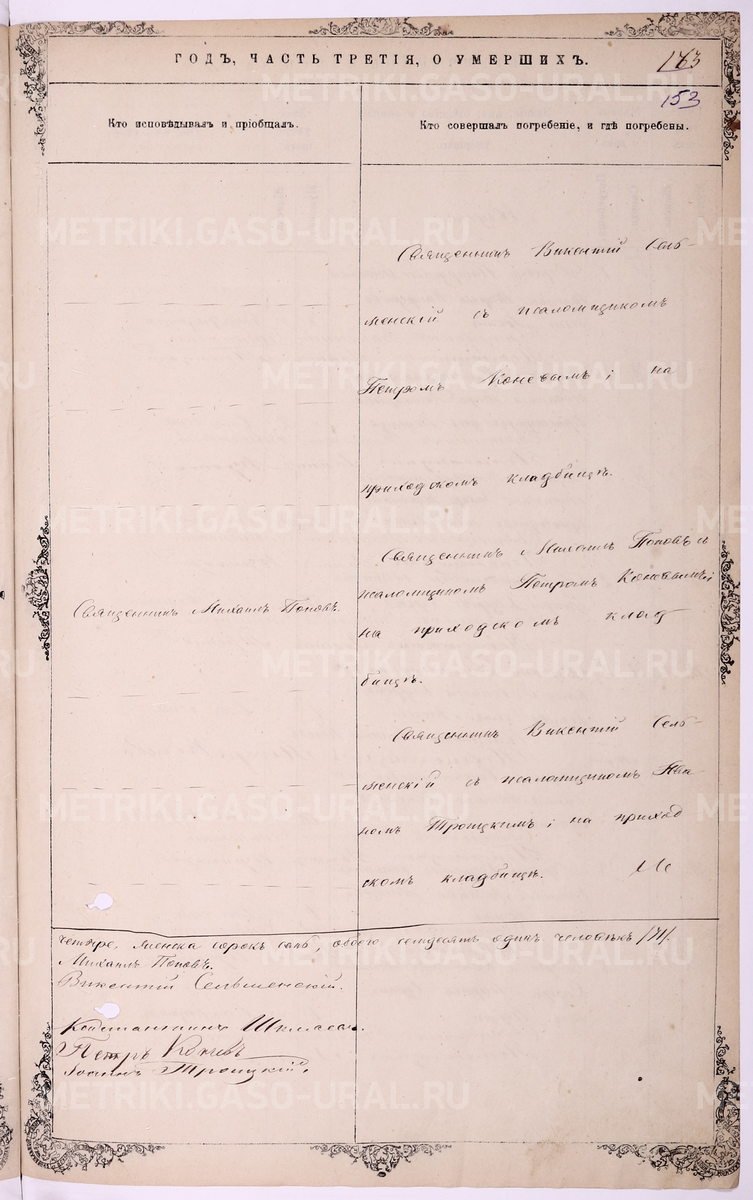 ГОДЪ, ЧАСТЬ ТРЕТІЯ, О УМЕРШИХЪ.
183
153
Кто исповѣдывалъ и пріобщалъ.
Кто совершалъ погребеніе, и гдѣ погребены.
Священникъ Викентій Сель-
менскій съ псаломщикомъ
Петромъ Коневымъ; на
приходскомъ кладбищѣ.
Священникъ Михаилъ Поповъ съ
псаломщикомъ Петромъ Коневымъ;
на приходскомъ клад
бищѣ.
Священникъ Михаилъ Поповъ.
Священникъ Викентій Сель-
менскій съ псаломщикомъ
Троицкимъ; на приход
скомъ кладбищѣ.
четыре, женска сорокъ семь, обоего семдесятъ одинъ человѣкъ /71/.
Михаилъ Поповъ.
Викентій Сельменскій.
Константинъ
Петръ Коневъ
Іоаннъ Троицкій.
METRIKI.GASO-URAL.RU